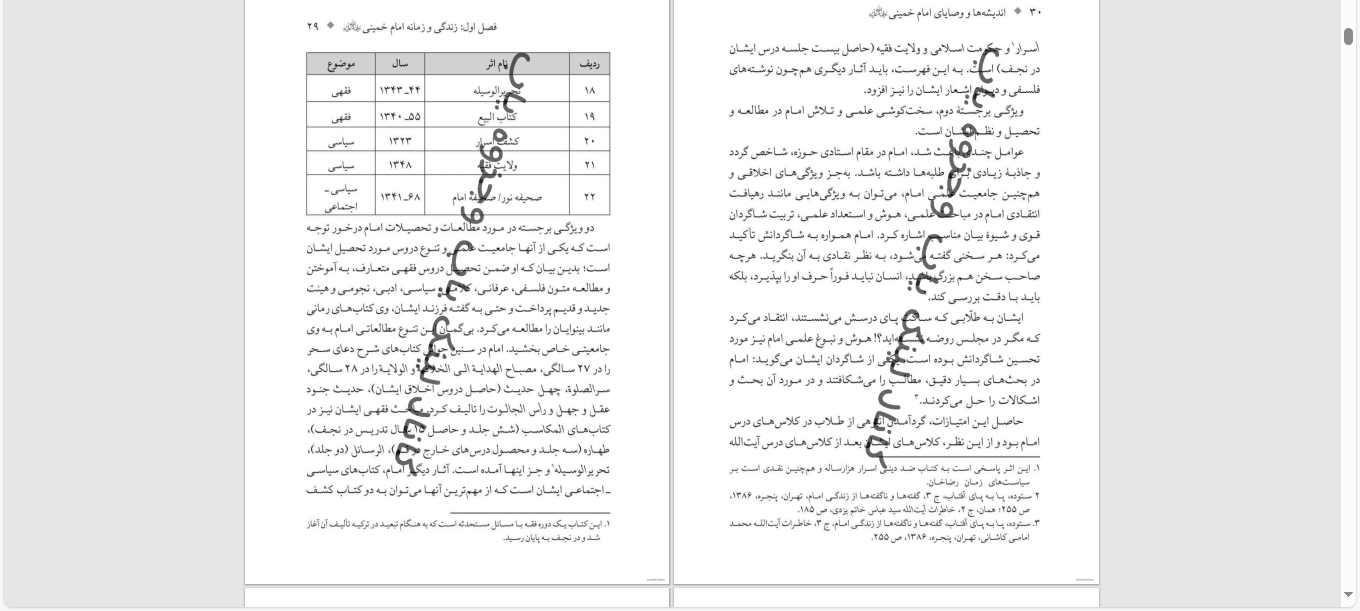 ۳۰ ◆ اندیشه‌ها و وصایای امام خمینی
اسرار۱ و حکومت اسلامی و ولایت فقیه (حاصل بیست جلسه درس ایشان
در نجف) است. به این فهرست، باید آثار دیگری هم‌چون نوشته‌های
فلسفی و دیوان اشعار ایشان را نیز افزود.
ویژگی برجستهٔ دوم، سخت‌کوشی علمی و تلاش امام در مطالعه و
تحصیل و نظم ایشان است.
عوامل چندی باعث شد، امام در مقام استادی حوزه، شاخص گردد
و جاذبهٔ زیادی برای طلبه‌ها داشته باشد. به‌جز ویژگی‌های اخلاقی و
هم‌چنین جامعیت علمی امام، می‌توان به ویژگی‌هایی مانند رهیافت
انتقادی امام در مباحث علمی، هوش و استعداد علمی، تربیت شاگردان
قوی و شیوهٔ بیان مناسب اشاره کرد. امام همواره به شاگردانش تأکید
می‌کرد: هر سخنی گفته می‌شود، به نظر نقادی به آن بنگرید. هرچه
صاحب سخن هم بزرگ باشد، انسان نباید فوراً حرف او را بپذیرد، بلکه
باید با دقت بررسی کند.
ایشان به طلّابی که ساکت پای درسش می‌نشستند، انتقاد می‌کرد
که مگر در مجلس روضه نشسته‌اید؟! هوش و نبوغ علمی امام نیز مورد
تحسین شاگردانش بوده است. یکی از شاگردان ایشان می‌گوید: امام
در بحث‌های بسیار دقیق، مطالب را می‌شکافتند و در مورد آن بحث و
اشکالات را حل می‌کردند.۳
حاصل این امتیازات، گردآمدن انبوهی از طلاب در کلاس‌های درس
امام بود و از این نظر، کلاس‌های ایشان بعد از کلاس‌های درس آیت‌الله
۱. این اثر پاسخی است به کتاب ضد دینی اسرار هزارساله و هم‌چنین نقدی است بر
سیاست‌های زمان رضاخان.
۲ ستوده، پا به پای آفتاب، ج ۳، گفته‌ها و ناگفته‌ها از زندگی امام، تهران، پنجره، ۱۳۸۶،
ص ۲۵۵؛ همان، ج ۲، خاطرات آیت‌الله سید عباس خاتم یزدی، ص ۱۸۵.
۳. ستوده، پا به پای آفتاب، گفته‌ها و ناگفته‌ها از زندگی امام، ج ۳، خاطرات آیت‌الله محمد
امامی کاشانی، تهران، پنجره، ۱۳۸۶، ص ۲۵۵.
فصل اول: زندگی و زمانه امام خمینی ◆ ۲۹
ردیف نام اثر سال موضوع
۱۸ تحریرالوسیله ۴۴ـ۱۳۴۳ فقهی
۱۹ کتاب البیع ۵۵ـ۱۳۴۰ فقهی
۲۰ کشف اسرار ۱۳۲۳ سیاسی
۲۱ ولایت فقیه ۱۳۴۸ سیاسی
۲۲ صحیفه نور/ صحیفه امام ۶۸ـ۱۳۴۱ سیاسی ـ
اجتماعی
دو ویژگی برجسته در مورد مطالعات و تحصیلات امام درخور توجه
است که یکی از آنها جامعیت علمی و تنوع دروس مورد تحصیل ایشان
است؛ بدین بیان که او ضمن تحصیل دروس فقهی متعارف، به آموختن
و مطالعه متون فلسفی، عرفانی، کلامی، سیاسی، ادبی، نجومی و هیئت
جدید و قدیم پرداخت و حتی به گفته فرزند ایشان، وی کتاب‌های رمانی
مانند بینوایان را مطالعه می‌کرد. بی‌گمان این تنوع مطالعاتی امام به وی
جامعیتی خاص بخشید. امام در سنین جوانی کتاب‌های شرح دعای سحر
را در ۲۷ سالگی، مصباح الهدایة الی الخلافة و الولایة را در ۲۸ سالگی،
سرالصلوة، چهل حدیث (حاصل دروس اخلاق ایشان)، حدیث جنود
عقل و جهل و رأس الجالوت را تالیف کرد. مباحث فقهی ایشان نیز در
کتاب‌های المکاسب (شش جلد و حاصل ۱۵ سال تدریس در نجف)،
طهاره (سه جلد و محصول درس‌های خارج در قم)، الرسائل (دو جلد)،
تحریرالوسیله۱ و جز اینها آمده است. آثار دیگر امام، کتاب‌های سیاسی
ـ اجتماعی ایشان است که از مهم‌ترین آنها می‌توان به دو کتاب کشف
۱. این کتاب یک دوره فقه با مسائل مستحدثه است که به هنگام تبعید در ترکیه تألیف آن آغاز
شد و در نجف به پایان رسید.